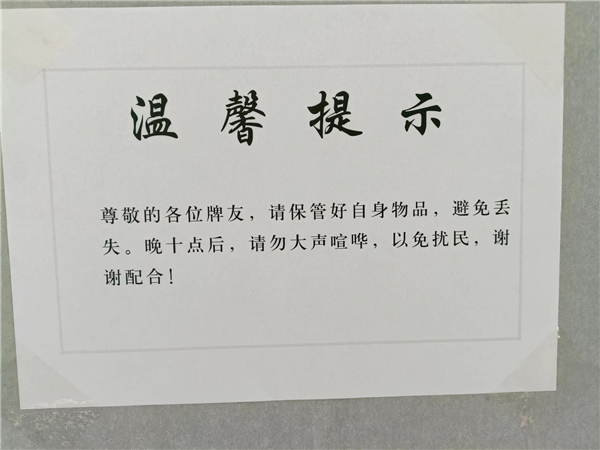 温馨提示
尊敬的各位牌友，请保管好自身物品，避免丢
失。晚十点后，请勿大声喧哗，以免扰民，谢
谢配合！